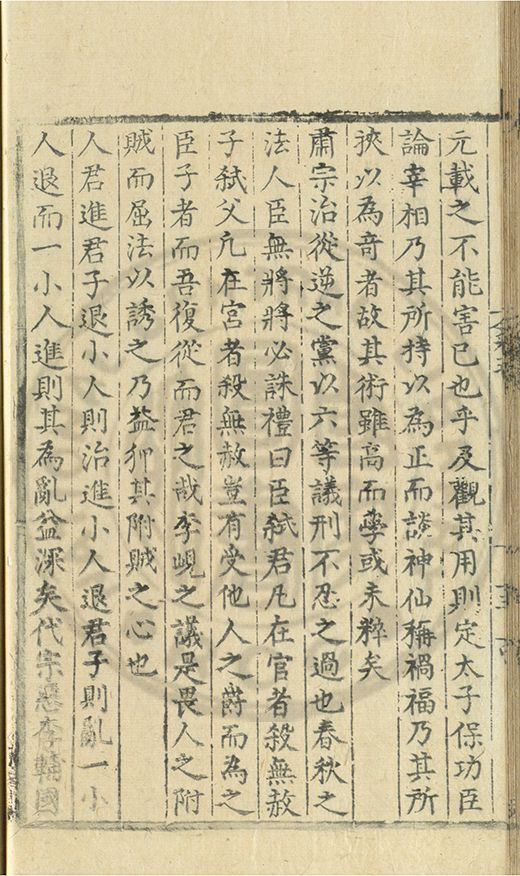 元載之不能害已也乎及觀其用則定太子保功臣
論宰相乃其所持以為正而談神仙稱禍福乃其所
挾以為竒者故其術雖高而學或未粹矣
肅宗治從逆之黨以六等議刑不忍之過也春秋之
法人臣無將將必誅禮曰臣弑君凡在官者殺無赦
子弑父凢在宮者殺無赦豈有受他人之爵而為之
臣子者而吾復從而君之㢤李峴之議是畏人之附
賊而屈法以誘之乃益狎其附賊之心也
人君進君子退小人則治進小人退君子則亂一小
人退而一小人進則其為亂益深矣代宗惡李輔國